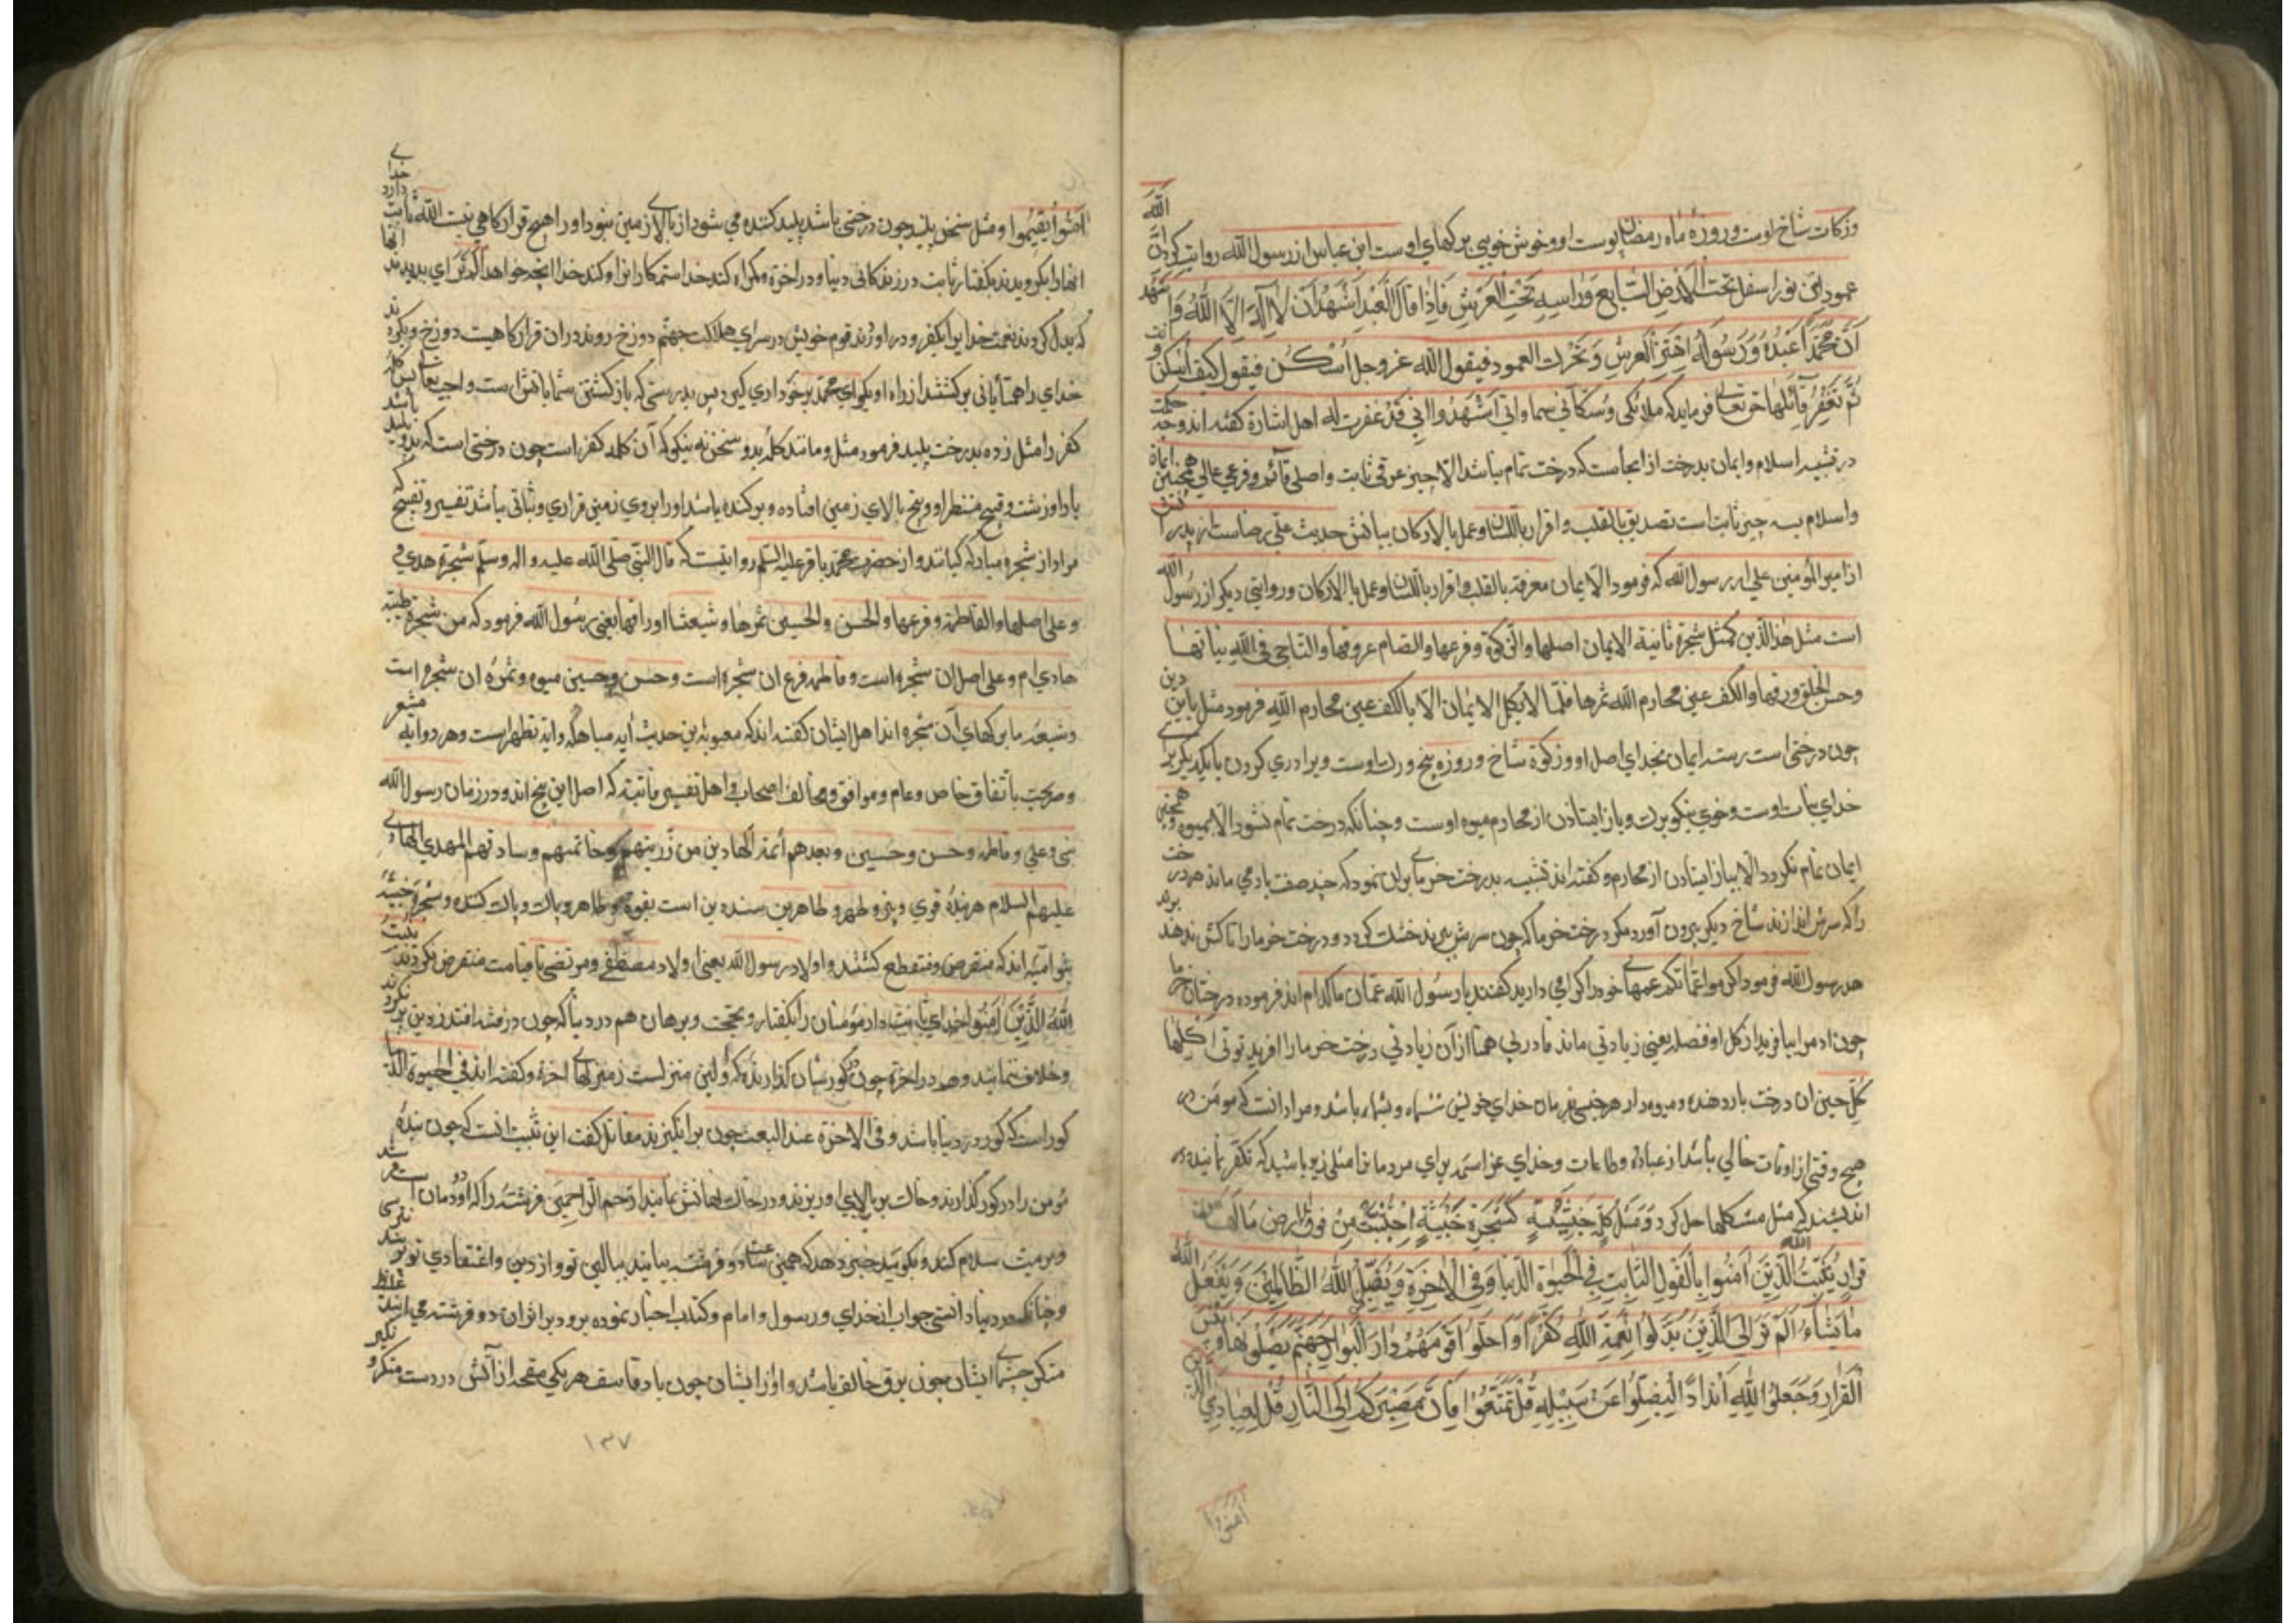 وزکات شاخ اوست وروزهٔ ماه رمضان پوست او وخوش خویی برکهای اوست ابن عباس از رسول الله روایت کرد انّ الله
عمودا من نور اسفل تحت الارض السّابع وراسه تحت العرش فاذا قال العبد اشهد ان لا اله الّا الله وا شهد
انّ محمّدا عبده ورسوله اهتزّ العرش وتحرّکت العمود فیقول الله عزوجل اسکن فیقول کیف اسکن و انت
لم تغفر قائلها حق تعالی فرماید که ملائکی وسکّانی سماواتی اشهدوا انی قد غفرت له اهل اشارة کفته اند وجه حکمت
در تشبیه اسلام وایمان بدرخت از انجاست که درخت تمام نباشد الّا بچیز عرقی ثابت واصلی قائم وفرعی عالی همچنین ایمان
واسلام بسه چیز ثابت است تصدیق بالقلب واقرار باللسان وعمل بالارکان بیانش حدیث علی رضاست از پدر
از امیر المؤمنین علی از رسول الله که فرمود الایمان معرفة بالقلب واقرار باللسان وعمل بالارکان وروایتی دیکر از رسول الله
است مثل هذا الدّین کمثل شجرة ثابتة الایمان اصلها والزّکوة وفرعها والصّیام عروقها والتاخی فی الله نباتها
وحسن الخلق ورقها والکف عن محارم الله ثمرها فکما لا یکمل الایمان الّا بالکف عن محارم الله فرمود مثل این دین
چون درختی است رسته ایمان بخدای اصل او وزکوة شاخ وروزه بیخ ورک اوست وبرادری کردن با یکدیکر برای
خدای نبات اوست وخوی نیکو برک وباز ایستادن از محارم میوه اوست وچنانکه درخت تمام نشود الّا بمیوه همچنین
ایمان تمام نکردد الّا بباز ایستادن از محارم وکفته اند تشبیه بدرخت خرمای بران نمود که چند صفت بادمی ماند هر درخت
را که سرش اندازند شاخ دیکر بیرون آورد مکر درخت خرما که چون سرش ببرند خشک کردد ودرخت خرما را تا کش ندهند
هد رسول الله فرمود اکرموا عمّاتکم عمهای خود را کرامی دارید کفتند یا رسول الله عمّات ما کدام اند فرموده درختان خرما
چون ادم را بیافرید از کل او فضله یعنی زیادتی ماند قادر بی همتا از آن زیادتی درخت خرما را افرید توتی اکلها
کلّ حین ان درخت بار دهنده ومیوه دار هر حین بفرمان خدای خویش ومراد انست که مؤمن در
هیچ وقتی از اوقات خالی نباشد از عبادت وطاعات وخدای عز اسمه برای مردمان امثال زند باشد که تفکر نمایند و
اندیشند که مثل مشکلها حل کرد ومثل کلمة خبیثة کشجرة خبیثة اجتثّت من فوق الارض ما لها من
قرار یثبّت الله الّذین امنوا بالقول الثّابت فی الحیوة الدّنیا وفی الاخرة ویضلّ الله الظّالمین ویفعل الله
ما یشاء الم تر الی الّذین بدّلوا نعمة الله کفرا واحلّوا قومهم دار البوار جهنّم یصلونها وبئس
القرار وجعلوا لله اندادا لیضلّوا عن سبیله قل تمتّعوا فانّ مصیرکم الی النّار قل لعبادی الذین
امنوا
امنوا یقیموا ومثل سخن پلید چون درختی باشد پلید کنده می شود از بالای زمین نبود اورا هیچ قرار کاهی یثبت الله ثابت دارد خدای
انها را بکرویدند بکفتار ثابت در زندکانی دنیا ودر اخرة وکمراه کند خدا ستمکارانرا وکند خدا انچه خواهد الم تر ای ندیدند انها
که بدل کردند نعمت خدایرا بکفر ودر اوردند قوم خویش در سرای هلاکت جهنّم دوزخ روند دران قرار کاهیست دوزخ وبکردند
خدای را همتایانی برکشتند از راه او بکو ای محمّد برخورداری کیرید پس بدرستی که باز کشتن شما باتش است واجب تعالی پس کلمه
کفر را مثل زده بدرخت پلید فرمود مثل ومانند کلمهٔ بد وسخن نه نیکو که آن کلمه کفر است چون درختی است که بدو پلید باشد
با واوز زشت وقبیح منتظر او وبیخ بالای زمین افتاده وبرکنده باشد اورا بروی زمین قراری وثباتی نباشد تفسیر وتفسیح که
مراد از شجره مبارکه کیانند واز حضرت محمّد باقر علیه السّلم روایتست که قال النبّی صلّی الله علیه واله وسلّم شجرة هدی
وعلی اصلها والفاطمة وفرعها والحسن والحسین ثمرها وشیعتنا اوراقها یعنی رسول الله فرمود که من شجرة طیبه
هادی ام وعلی اصل ان شجره است وفاطمه فرع ان شجره است وحسن وحسین میوه وثمرهٔ ان شجره است
وشیعهٔ ما برکهای آن شجره اند اهل ایشان کفته اند که این حدیث آیه مباهله وایه تطهیر است وهر دو ایه مشعر
وصریحت باتفاق خاص وعام وموافق ومخالف اصحاب واهل تفسیر ثابت که اصل این پنج اند ودر زمان رسول الله
نبی وعلی وفاطمه وحسن وحسین وبعدهم ائمة الهادین من ذرّیتهم وخاتمهم وسادتهم المهدی الهادی
علیهم السلام هر بندهٔ قوی وطاهرین سنده دین است بقوة وطاهر وپاک وپاک کننده وشجرة خبیثه
بنو امیّه اند که منقرض ومنقطع کشتند واولاد رسول الله یعنی اولاد مصطفی ومرتضی تا قیامت منقرض نکردند یثبّت
الله الّذین امنوا خدای ثابت دار مؤمنان را بکفتار وبحجت وبرهان هم در دنیا که چون در فتنه افتند از دین برنکردند
وخلاف ننمایند وهم در اخرة چون در کورشان کذارند که اولین منزلست از منزلهای اخرة وکفته اند فی الحیوة الدنیا
کور است که کور در دنیا باشد وفی الاخرة عند البعث چون برانکیزند مقاتل کفت این تثبیت انست که چون بندهٔ
مؤمن را در کور کذارند وخاک بر بالای او ریزند ودر خاک نهانش نمایند ارحم الراحمین فرشتهٔ را که او دومان است
وبر میت سلام کند وبکوید خبر دهد که همین ساعت دو فرشته بیایند ببالین تو واز دین واعتقادی تو پرسند
وچنانکه در دنیا دانستی جواب از خدای ورسول وامام وکتاب اخبار نموده برود بر اثران دو فرشته می ایند
منکر چشمهای ایشان چون برق خاطف باشد واواز ایشان چون باد قاصف هر یکی مقمعه از آتش در دست منکر و نکیر
۱۳۷